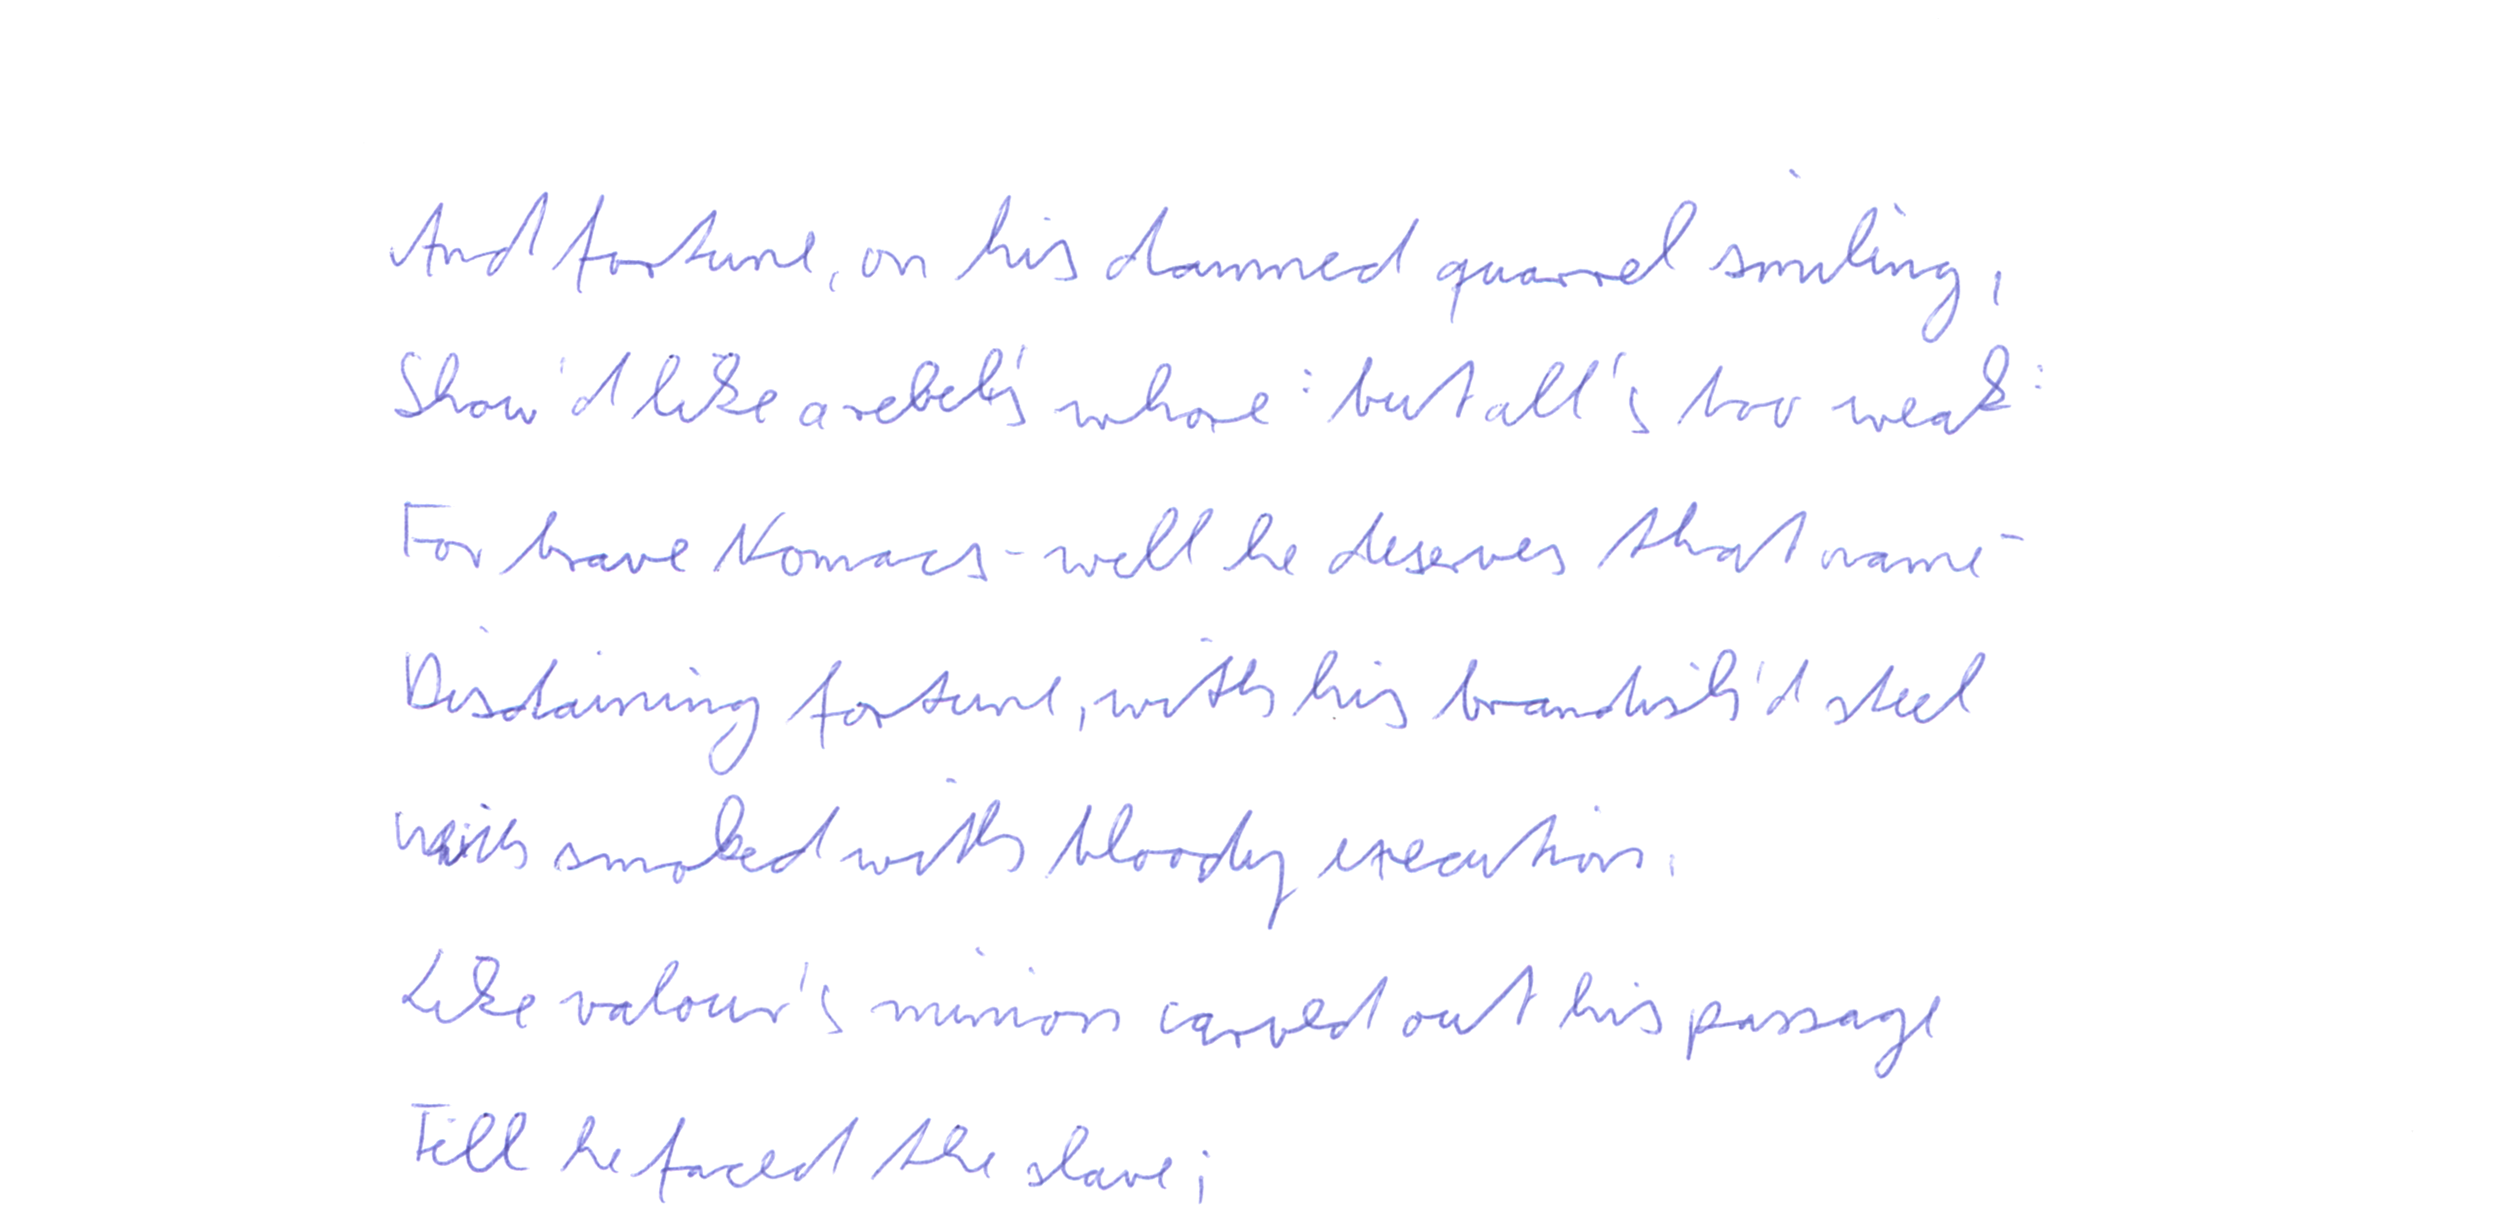 And fortune, on his damned quarrel smiling,
Show'd like a rebel's whore: but all's too weak:
For brave Macbeth - well he deserves that name -
Disdaining fortune, with his brandish'd steel
Which smoked with bloody execution,
Like valour's minion carved out his passage
Till he faced the slave;